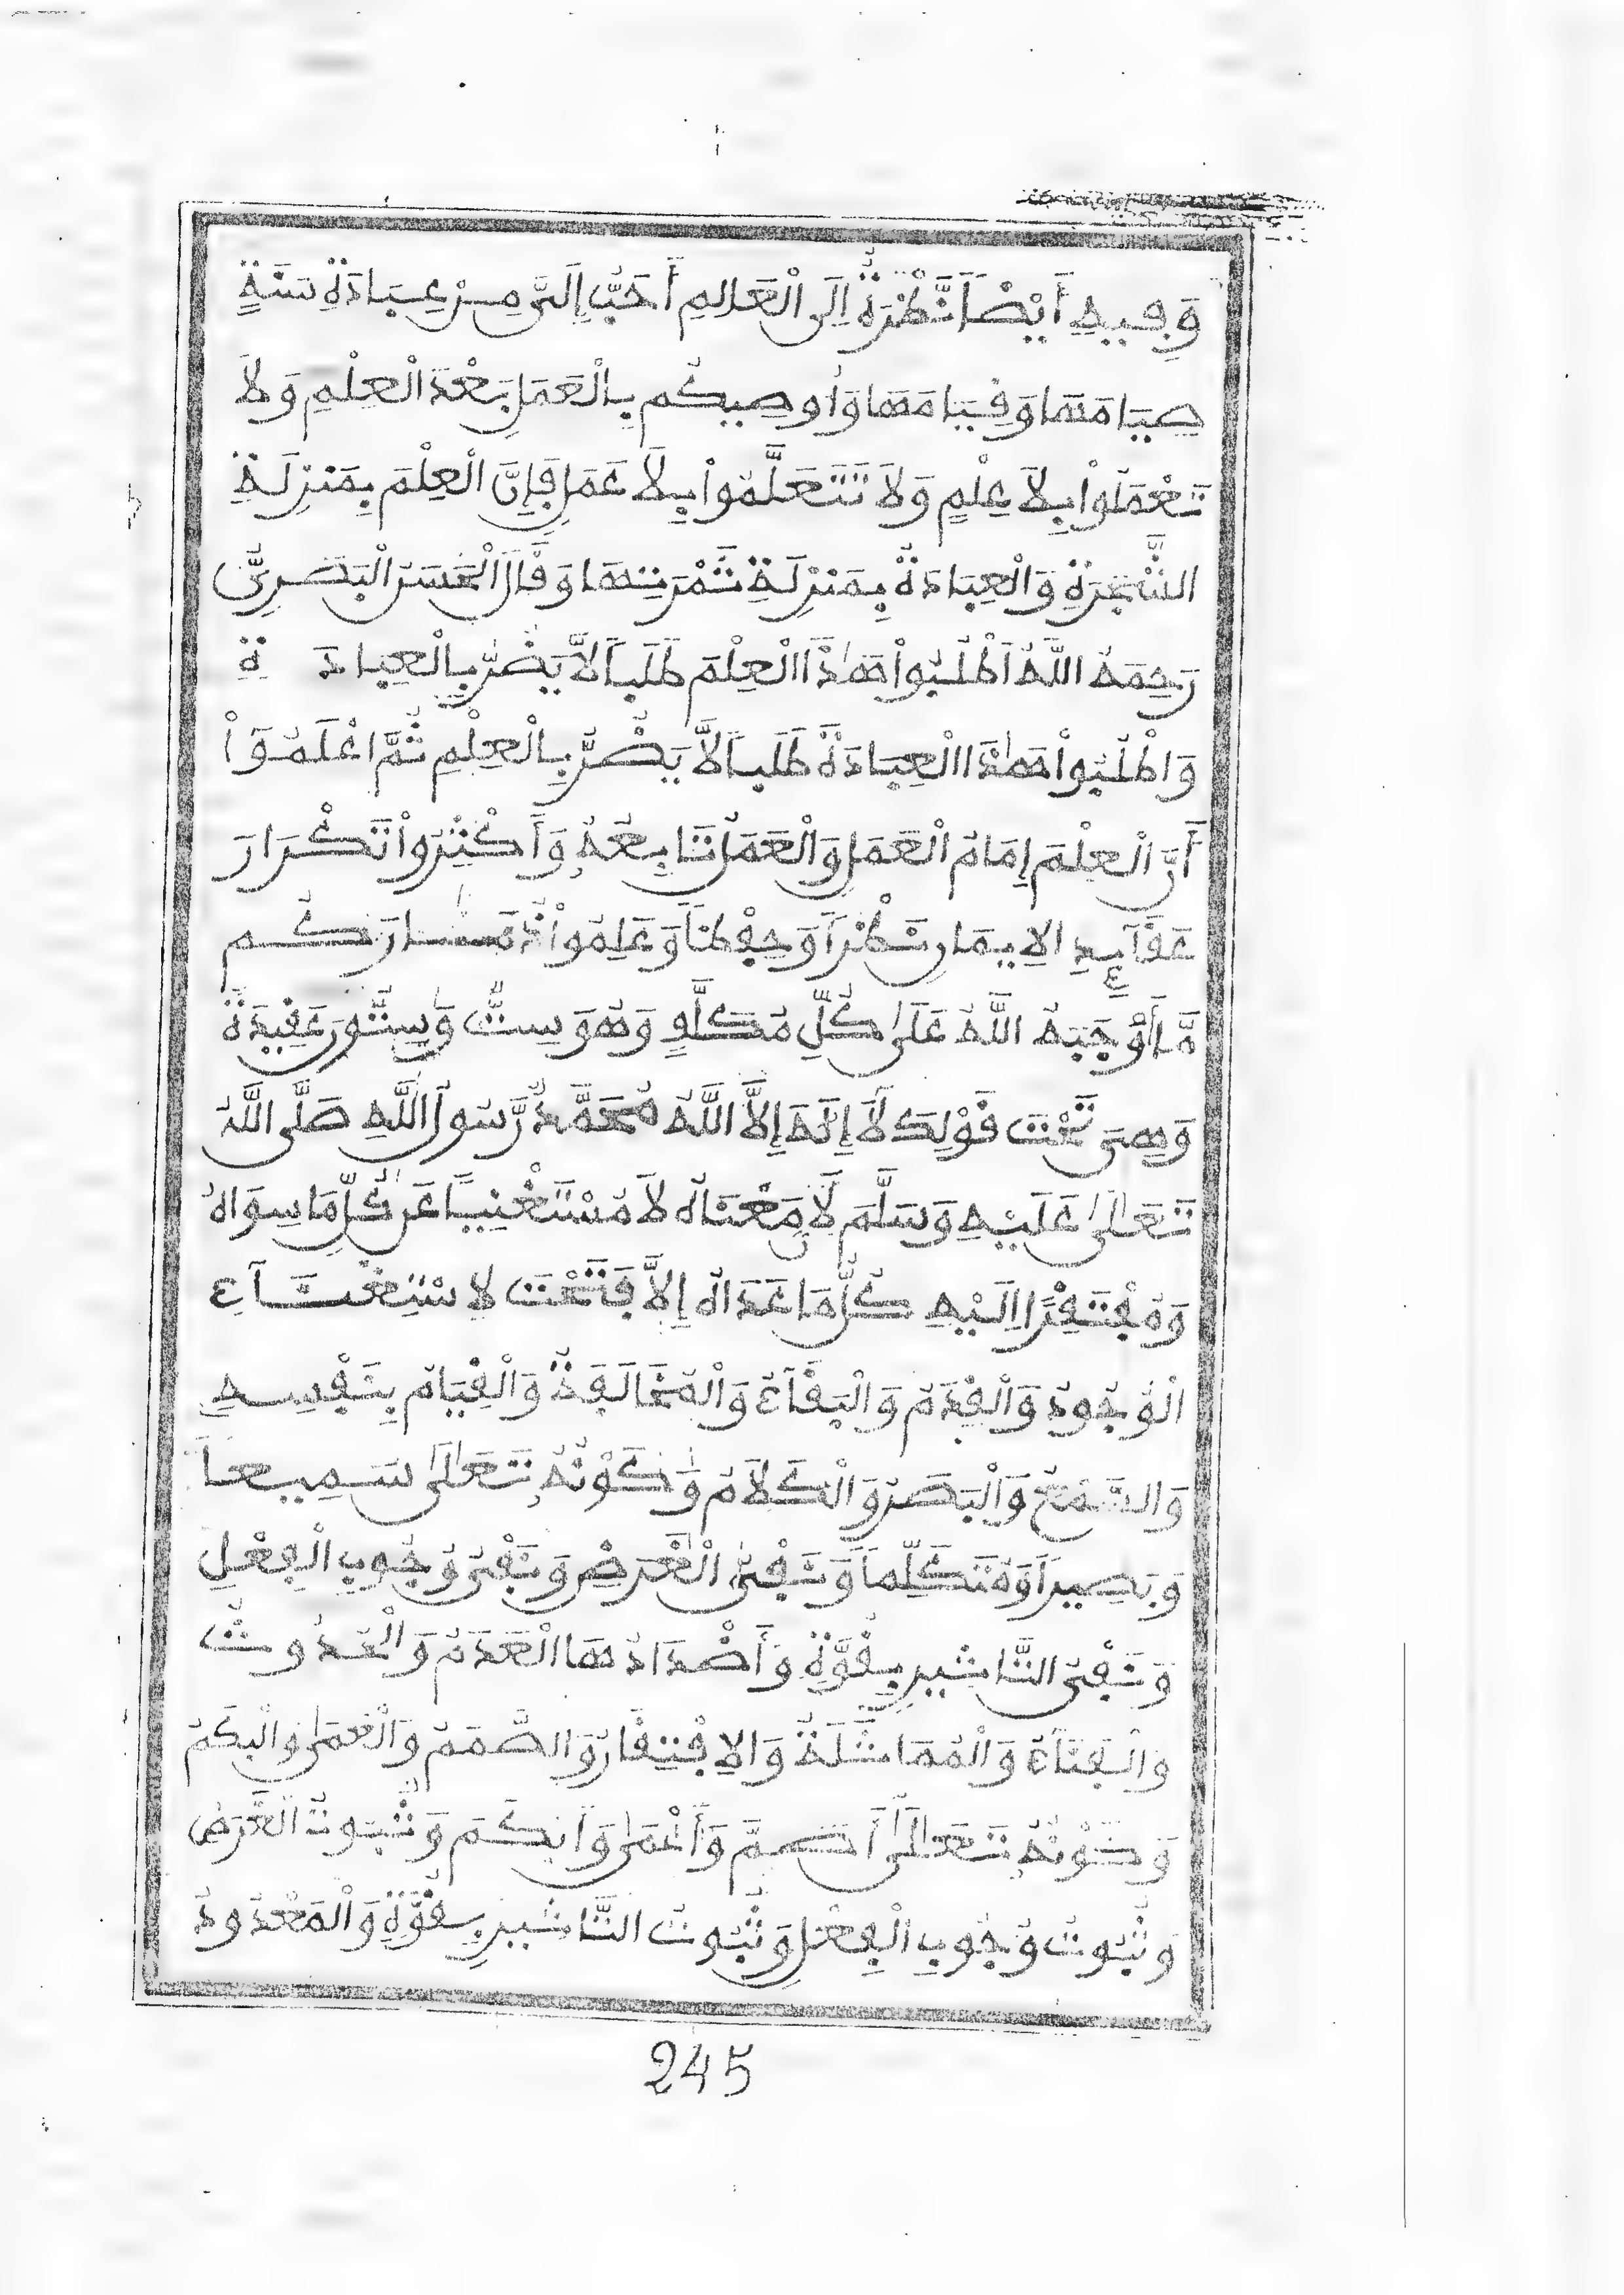 وَفِيهِ أَيْضًا نَّظْرَةٌ إِلَى الْعَالِمِ أَحَبُّ إِلَيَّ مِنْ عِبَادَةِ سَنَةٍ
صِيَامَهَا وَقِيَامَهَا وَأُوصِيكُم بِالْعَمَلِ بَعْدَ الْعِلْمِ وَلاَ
تَعْمَلُواْ بِلاَ عِلْمٍ وَلاَ تَتَعَلَّمُواْ بِلاَ عَمَلٍ فَإِنَّ الْعِلْمَ بِمَنْزِلَةِ
الشَّجَرَةِ وَالْعِبَادَةُ بِمَنْزِلَةِ ثَمْرَتِهَا وَقَالَ الْحَسَنُ الْبَصَرِيُّ
رَحِمَهُ اللَّهُ اَطْلُبُواْ هَٰذَا الْعِلْمَ طَلَباً لاَّ يَضُرُّ بِالْعِبَادَةِ
وَاطْلُبُواْ هَٰذَا الْعِبَادَةَ طَلَباً لاَّ يَضُرُّ بِالْعِلْمِ ثُمَّ اعْلَمُواْ
أَنَّ الْعِلْمَ إِمَامُ الْعَمَلِ وَالْعَمَلُ تَابِعُهُ وَأَكْثِرُواْ تَكْرَارَ
عَقَآئِدِ الاِيمَانِ نَظْراً وَحِفْظاً وَعَلِّمُواْ صِغَارَكُم
مَّا أَوْجَبَهُ اللَّهُ عَلَىٰ كُلِّ مُكَلَّفٍ وَهُوَ سِتٌّ وَسِتُّونَ عَقِيدَةً
وَهِيَ تَحْتَ قَوْلِكَ لآَ إِلَٰهَ إِلاَّ اللَّهُ مُحَمَّدٌ رَّسُولُ اللَّهِ صَلَّى اللَّهُ
تَعَالَىٰ عَلَيْهِ وَسَلَّمَ لَأَنَّ مَعْنَاهُ لاَ مُسْتَغْنِياً عَن كُلِّ مَا سِوَاهُ
وَمُفْتَقِرًا اِلَيْهِ كُلُّ مَا عَدَاهُ إِلاَّ فَتَحْتَ لاِسْتِغْنَآءِ
الْوُجُودُ وَالْقِدَمُ وَالْبَقَآءُ وَالْمُخَالَفَةُ وَالْقِيَامُ بِنَفْسِهِ
وَالسَّمْعُ وَالْبَصَرُ وَالْكَلاَمُ وَكَوْنُهُ تَعَالَىٰ سَمِيعاً
وَبَصِيراً وَمُتَكَلِّماً وَنَفْيُ الْغَرَضِ وَنَفْيُ وُجُوبِ الْفِعْلِ
وَنَفْيُ التَّاثِيرِ بِقُوَّةٍ وَأَضْدَادُهَا الْعَدَمُ وَالْحُدُوثُ
وَالْفَنَآءُ وَالْمُمَاثَلَةُ وَالاِفْتِقَارُ وَالصَّمَمُ وَالْعَمَىٰ وَالْبَكَمُ
وَكَوْنُهُ تَعَالَىٰ أَصَمَّ وَأَعْمَىٰ وَأَبْكَمَ وَثُبُوتُ الْغَرَضِ
وَثُبُوتُ وُجُوبِ الْفِعْلِ وَثُبُوتُ التَّاثِيرِ بِقُوَّةٍ وَالْمَعْدُودُ
245